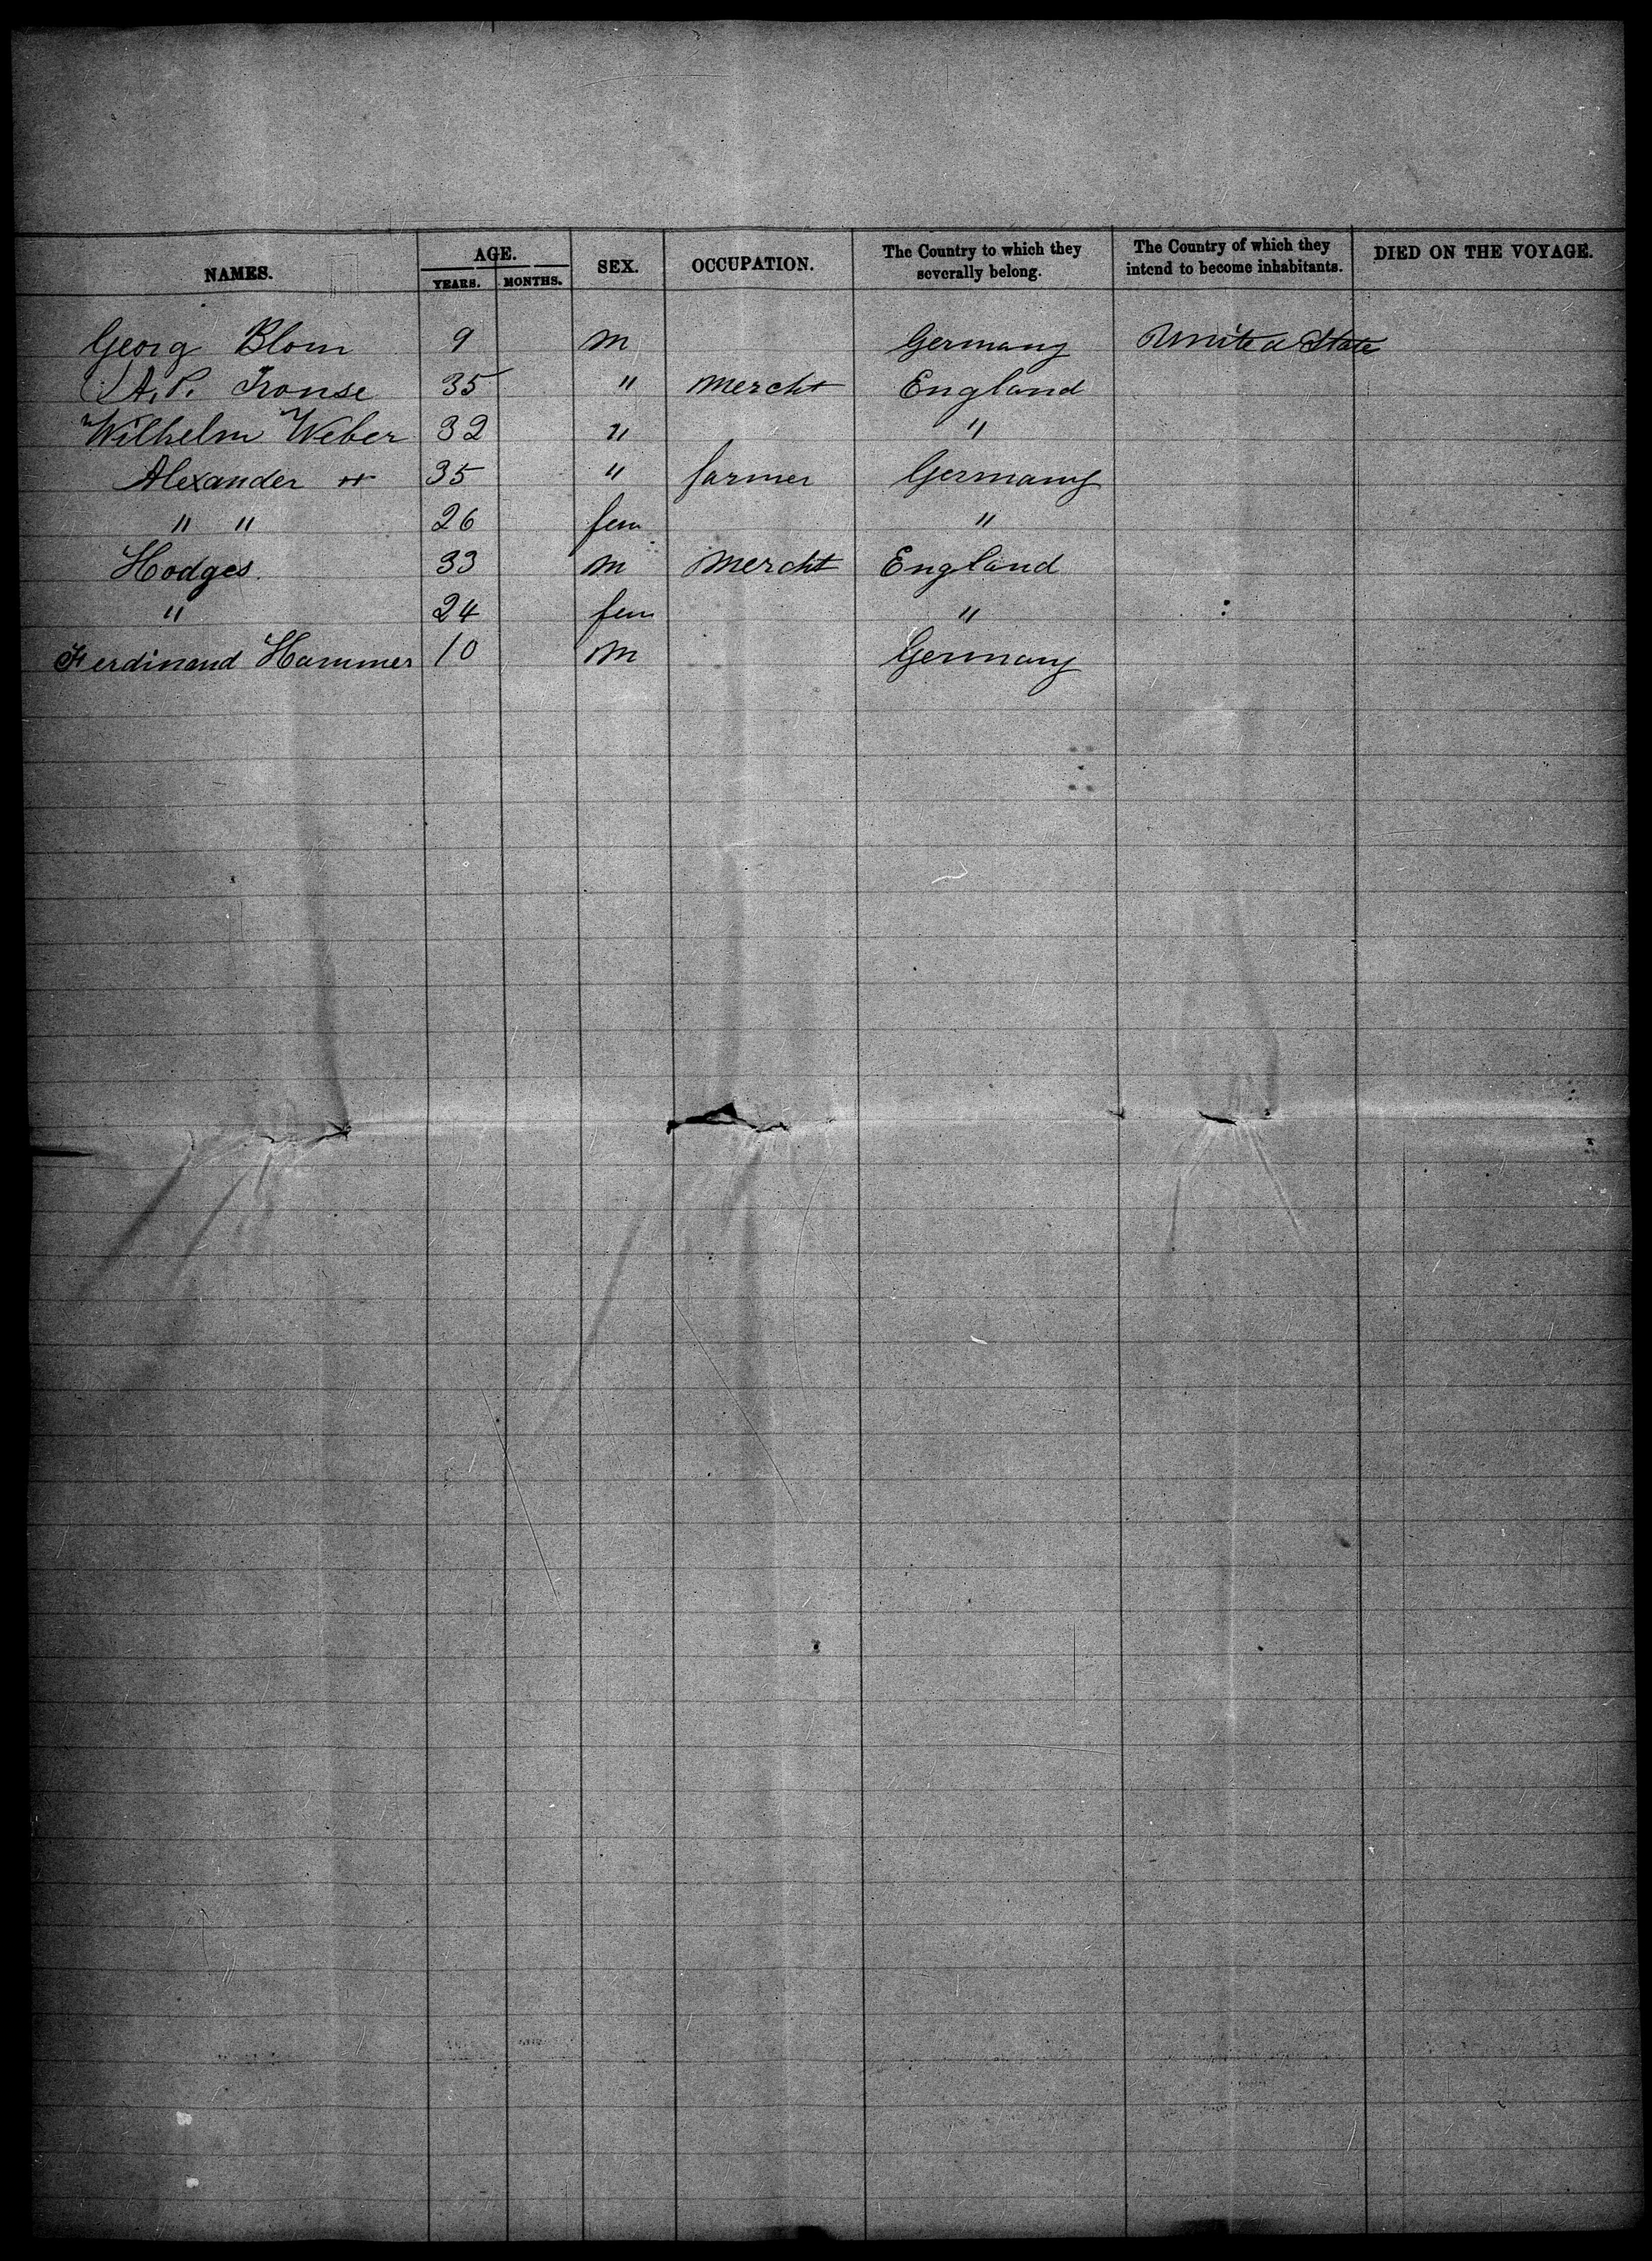 NAMES. AGE. YEARS. MONTHS. SEX. OCCUPATION. The Country to which they severally belong. The Country of which they intend to become inhabitants. DIED ON THE VOYAGE.
Georg Blom 9 m Germany United State
A. P. 35 " Mercht England
Wilhelm Weber 32 " "
Alexander " 35 " farmer Germany
" " 26 fem "
Hodges. 33 m Mercht England
" 24 fem "
Ferdinand Hammer 10 m Germany